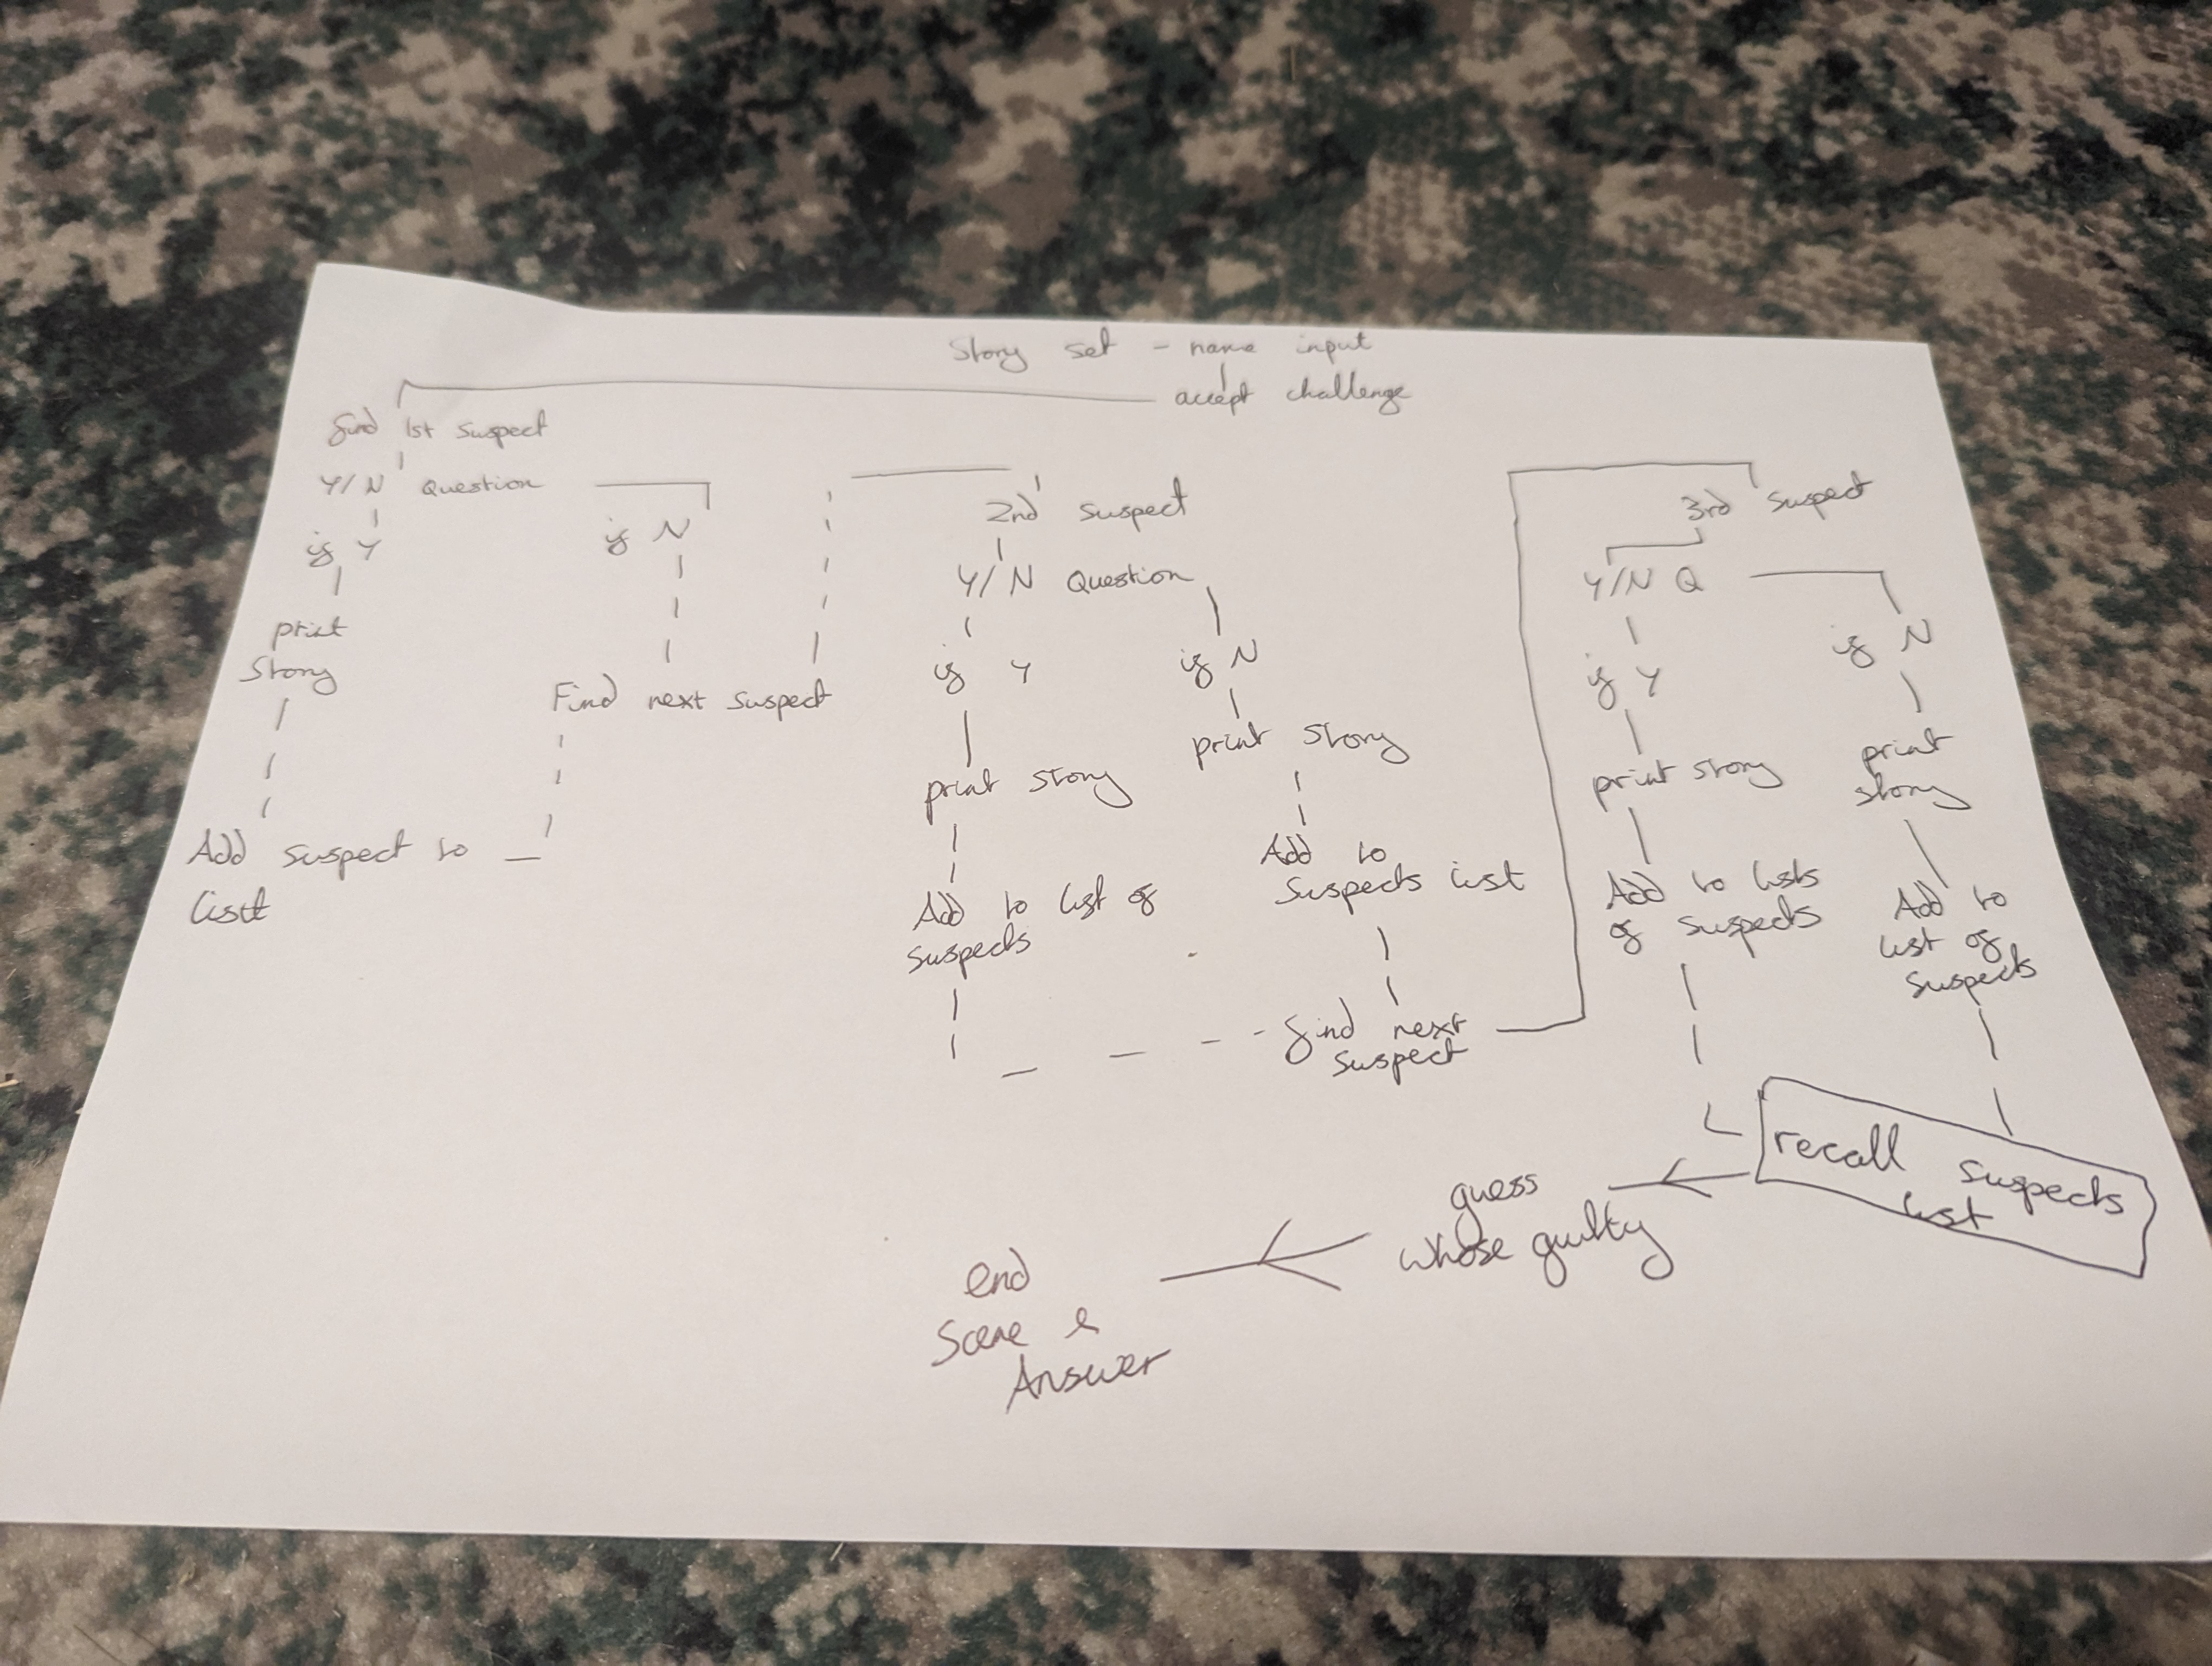 Story set - name input
accept challenge
find 1st suspect
Y/N Question
if Y
print
Story
Add suspect to
list
if N
Find next suspect
2nd suspect
Y/N Question
if Y
print story
Add to list of
suspects
if N
print story
Add to
suspects list
find next
suspect
3rd suspect
Y/N Q
if Y
print story
Add to lists
of suspects
if N
print
story
Add to
list of
suspects
recall suspects
list
guess
whose guilty
end
Scene &
Answer